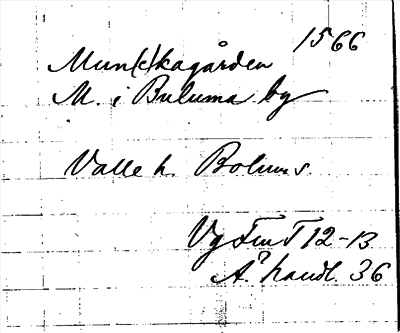 1566
Mun(c)kagården
M. i Buluma by
Valle h. Bolums.
Vg FmT 12-13
Å. handl. 36